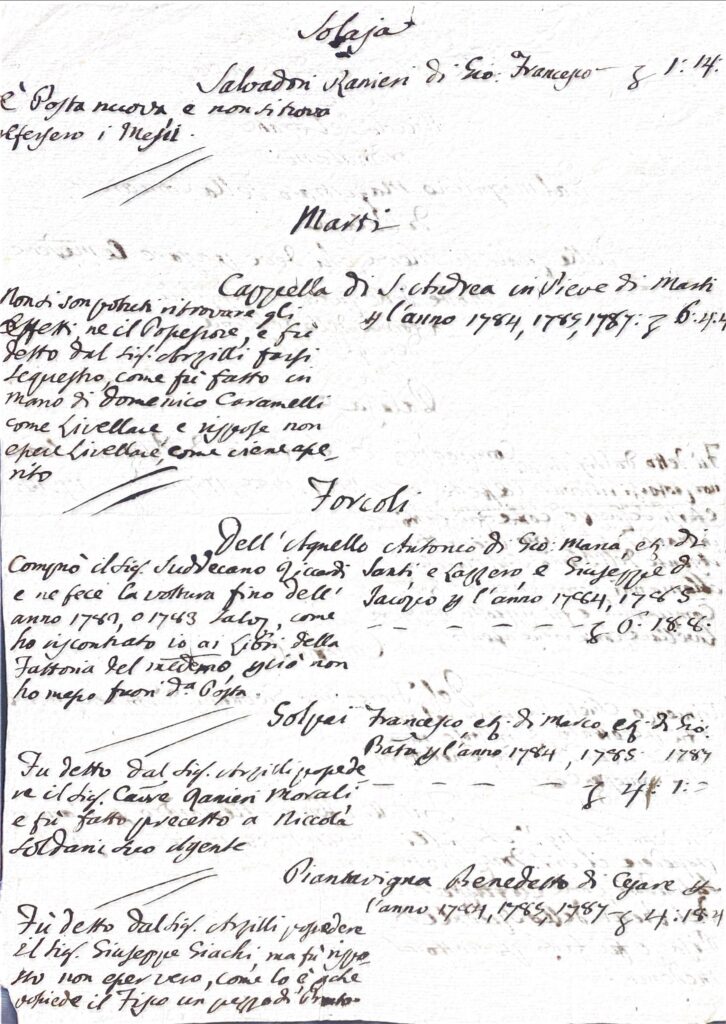 Solaja
Salvadori Ranieri di Gio. Francesco — 1: 14:
è Posta nuova e non si trova
i Messi.
Marti
Cappella di S. Andrea in Pieve di Marti
l'anno 1784, 1785, 1787: 6: 4: 4
Non si son potuti ritrovare gli
effetti ne il Possessore, e fù
detto dal Sig. Arzilli farsi
sequestro, come fù fatto in
mano di Domenico Caramelli
come Livellare e rispose non
essere Livellare, come viene asse-
rito
Forcoli
Dell'Agnello Antonio di Gio: Maria, e di
Santi e Lazzero e Giuseppe d
Jacopo l'anno 1784, 1785
- - - - - - 0: 18: 8:
Comprò il Sig. Suddecano Riccardi
e ne fece la voltura fino dell'
anno 1782, o 1783 salvo, come
ho riscontrato io ai Libri della
Fattoria del medemo non
ho messo fuori da Posta.
Francesco e di Marco, e di Gio.
Batta l'anno 1784, 1785 1787
- - - - 4: 1: -
Fu detto dal Sig. Arzilli possede-
re il Sig. Ranieri Morali,
e fù fatto precetto a Niccola
Soldani suo Agente
Piantavigna Benedetto di Cesare
l'anno 1784, 1785, 1787 4: 18: 4
Fù detto dal Sig. Arzilli possedere
il Sig. Giuseppe Giachi, ma fù rispo-
sto non esser vero, come lo è che
possiede il Fisco un pezzo di